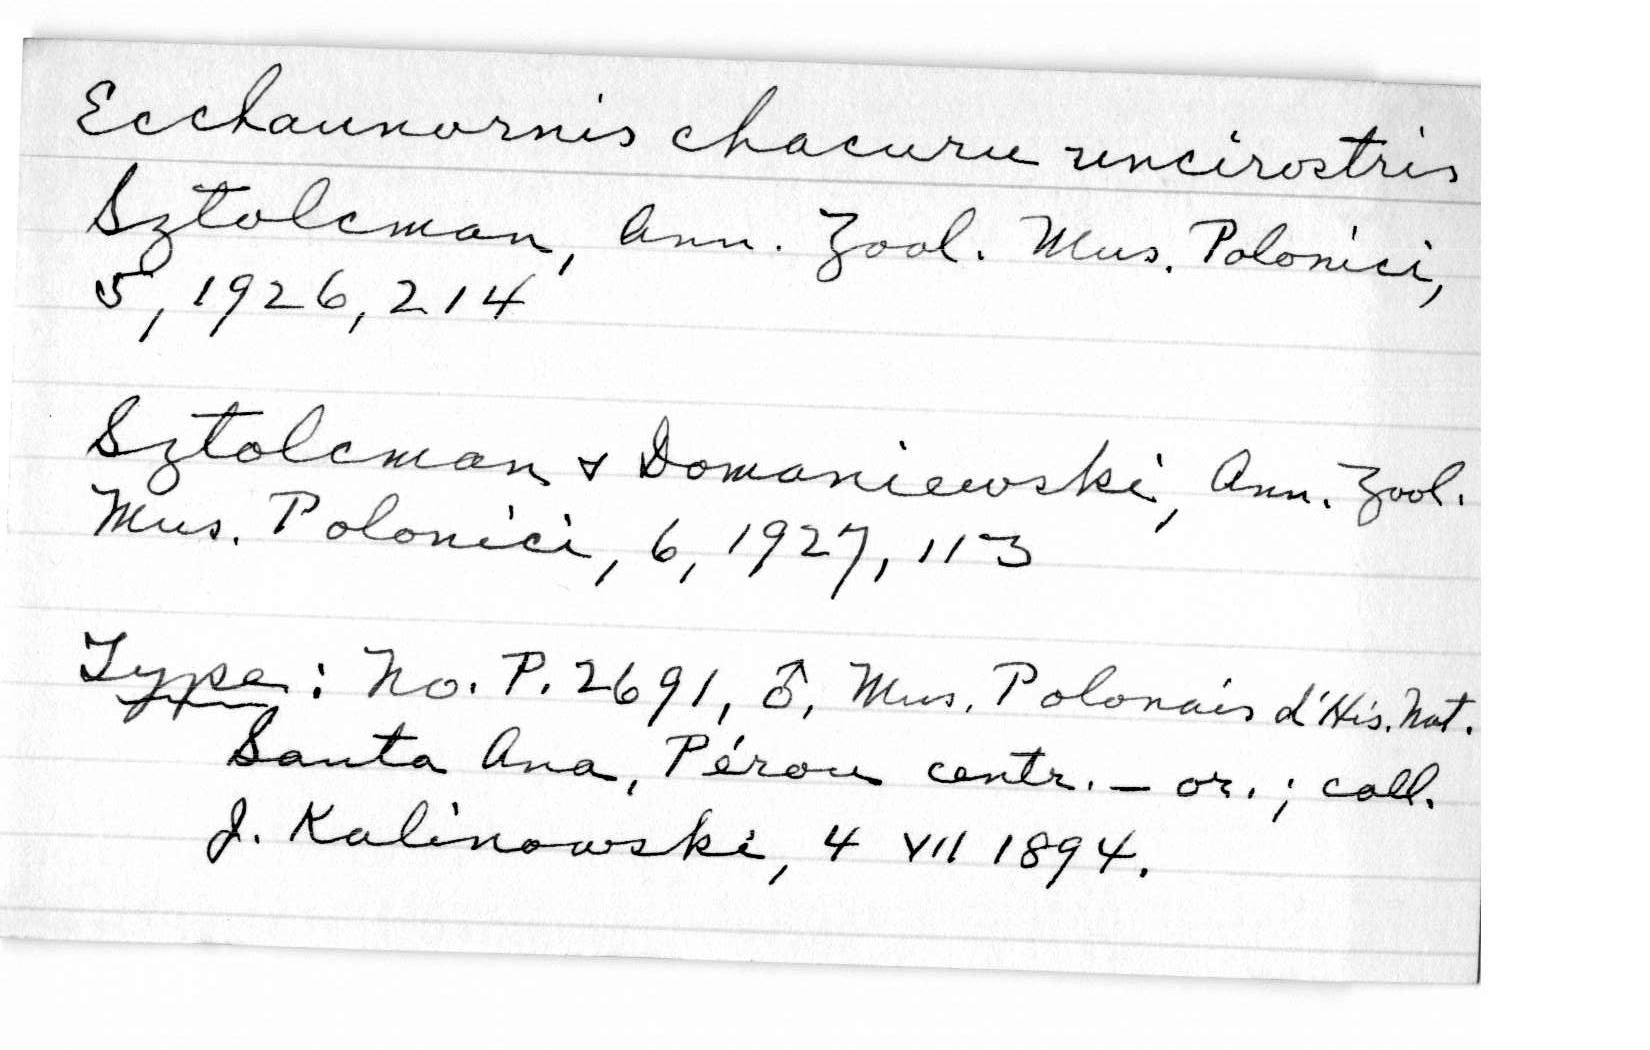 Ecchaunornis chacuru uncirostris
Sztolcman, Ann. Zool. Mus. Polonici,
5, 1926, 214
Sztolcman & Domaniewski, Ann. Zool.
Mus. Polonici, 6, 1927, 113
Type: No. P. 2691, ♂, Mus. Polonais d'His. Nat.
Santa Ana, Pérou centr. – or. ; coll.
J. Kalinowski, 4 VII 1894.